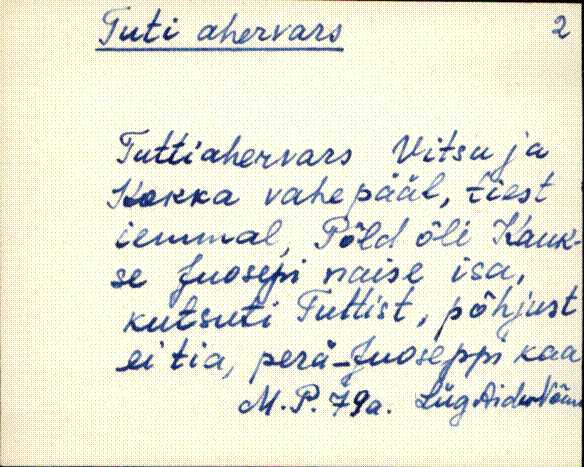 Tuti ahervars 2
Tuttiahervars Vitsu ja
Kokka vahepääl, tiest
iemmal, Põld õli Kauk-
se Juosepi naise isa,
kutsuti Tuttist, põhjust
ei tia, perä-Juoseppi kaa
M.P. 79a. Lüg Aidu